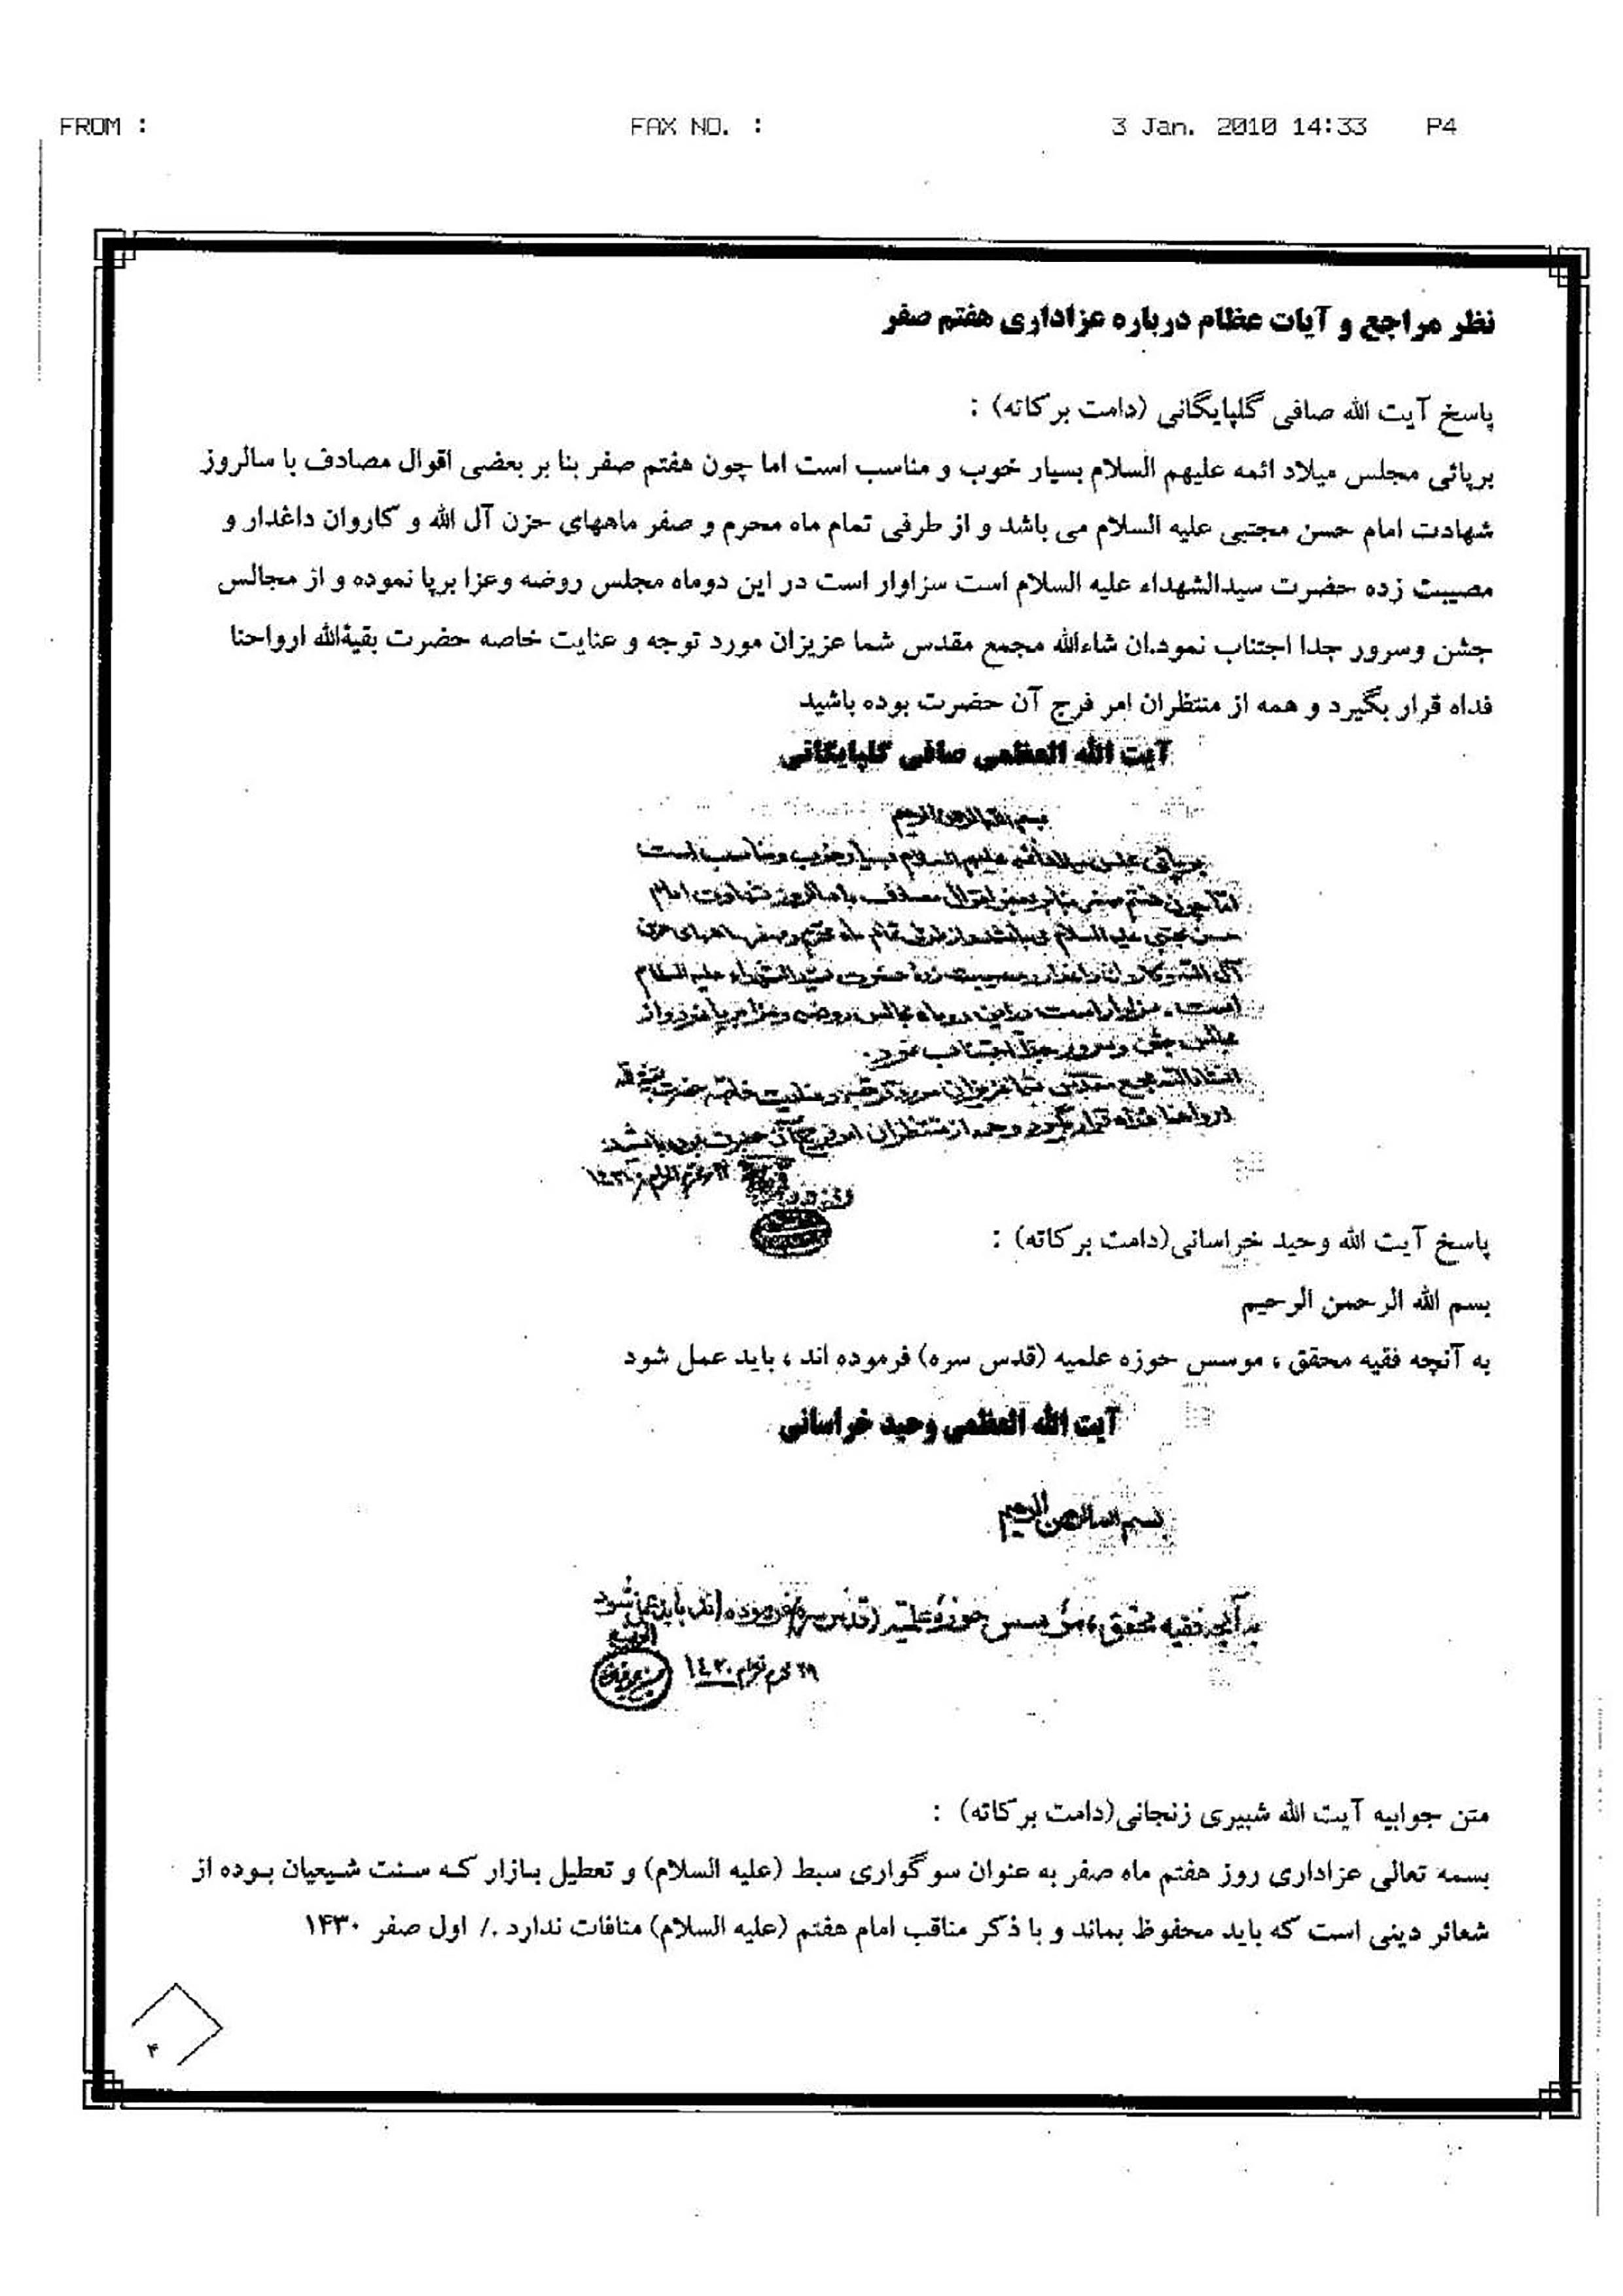 FROM : FAX NO. : 3 Jan. 2010 14:33 P4
نظر مراجع و آیات عظام درباره عزاداری هفتم صفر
پاسخ آیت الله صافی گلپایگانی (دامت برکاته) :
برپائی مجلس میلاد ائمه علیهم السلام بسیار خوب و مناسب است اما چون هفتم صفر بنا بر بعضی اقوال مصادف با سالروز
شهادت امام حسن مجتبی علیه السلام می باشد و از طرفی تمام ماه محرم و صفر ماههای حزن آل الله و کاروان داغدار و
مصیبت زده حضرت سیدالشهداء علیه السلام است سزاوار است در این دوماه مجلس روضه وعزا برپا نموده و از مجالس
جشن وسرور جدا اجتناب نمود.ان شاءالله مجمع مقدس شما عزیزان مورد توجه و عنایت خاصه حضرت بقیةالله ارواحنا
فداه قرار بگیرد و همه از منتظران امر فرج آن حضرت بوده باشید
آیت الله العظمی صافی گلپایگانی
بسم الله الرحمن الرحیم
برپائی مجلس میلاد ائمه علیهم السلام بسیار خوب و مناسب است
اما چون هفتم صفر بنا بر بعض اقوال مصادف با سالروز شهادت امام
حسن مجتبی علیه السلام می باشد و از طرفی تمام ماه محرم و صفر ماههای حزن
آل الله و کاروان داغدار و مصیبت زده حضرت سیدالشهداء علیه السلام
است . سزاوار است در این دو ماه مجالس روضه و عزا برپا نموده و از
مجالس جشن و سرور جداً اجتناب نمود.
انشاءالله مجمع مقدس شما عزیزان مورد توجه و عنایت خاصه حضرت بقیة الله
ارواحنا فداه قرار بگیرد و همه از منتظران امر فرج آن حضرت بوده باشید
پاسخ آیت الله وحید خراسانی(دامت برکاته) :
بسم الله الرحمن الرحیم
به آنچه فقیه محقق ، موسس حوزه علمیه (قدس سره) فرموده اند ، باید عمل شود
آیت الله العظمی وحید خراسانی
بسم الله الرحمن الرحیم
به آنچه فقیه محقق ، مؤسس حوزه علمیه (قدس سره) فرموده اند، باید عمل شود
۲۹ محرم الحرام ۱۴۳۰
متن جوابیه آیت الله شبیری زنجانی(دامت برکاته) :
بسمه تعالی عزاداری روز هفتم ماه صفر به عنوان سوگواری سبط (علیه السلام) و تعطیل بازار که سنت شیعیان بوده از
شعائر دینی است که باید محفوظ بماند و با ذکر مناقب امام هفتم (علیه السلام) منافات ندارد ./ اول صفر ۱۴۳۰
۴